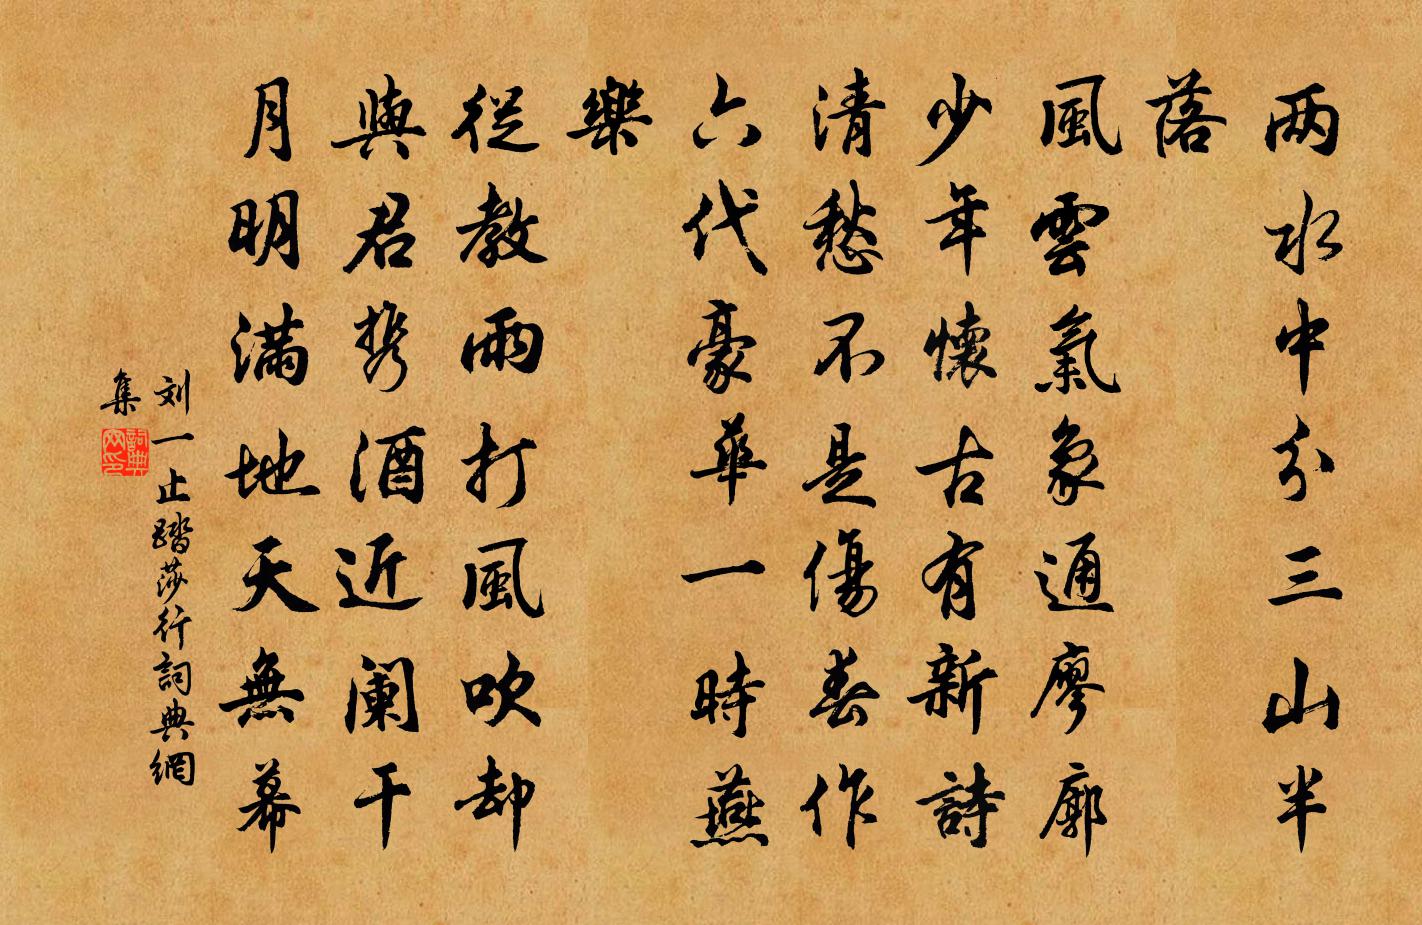 两水中分三山半
落
風雲氣象通廖廓
少年懷古有新詩
清愁不是傷春作
六代豪華一時燕
樂
從教雨打風吹却
與君携酒近阑干
月明滿地天無幕
刘一止踏莎行詞典網
集
詞典網印